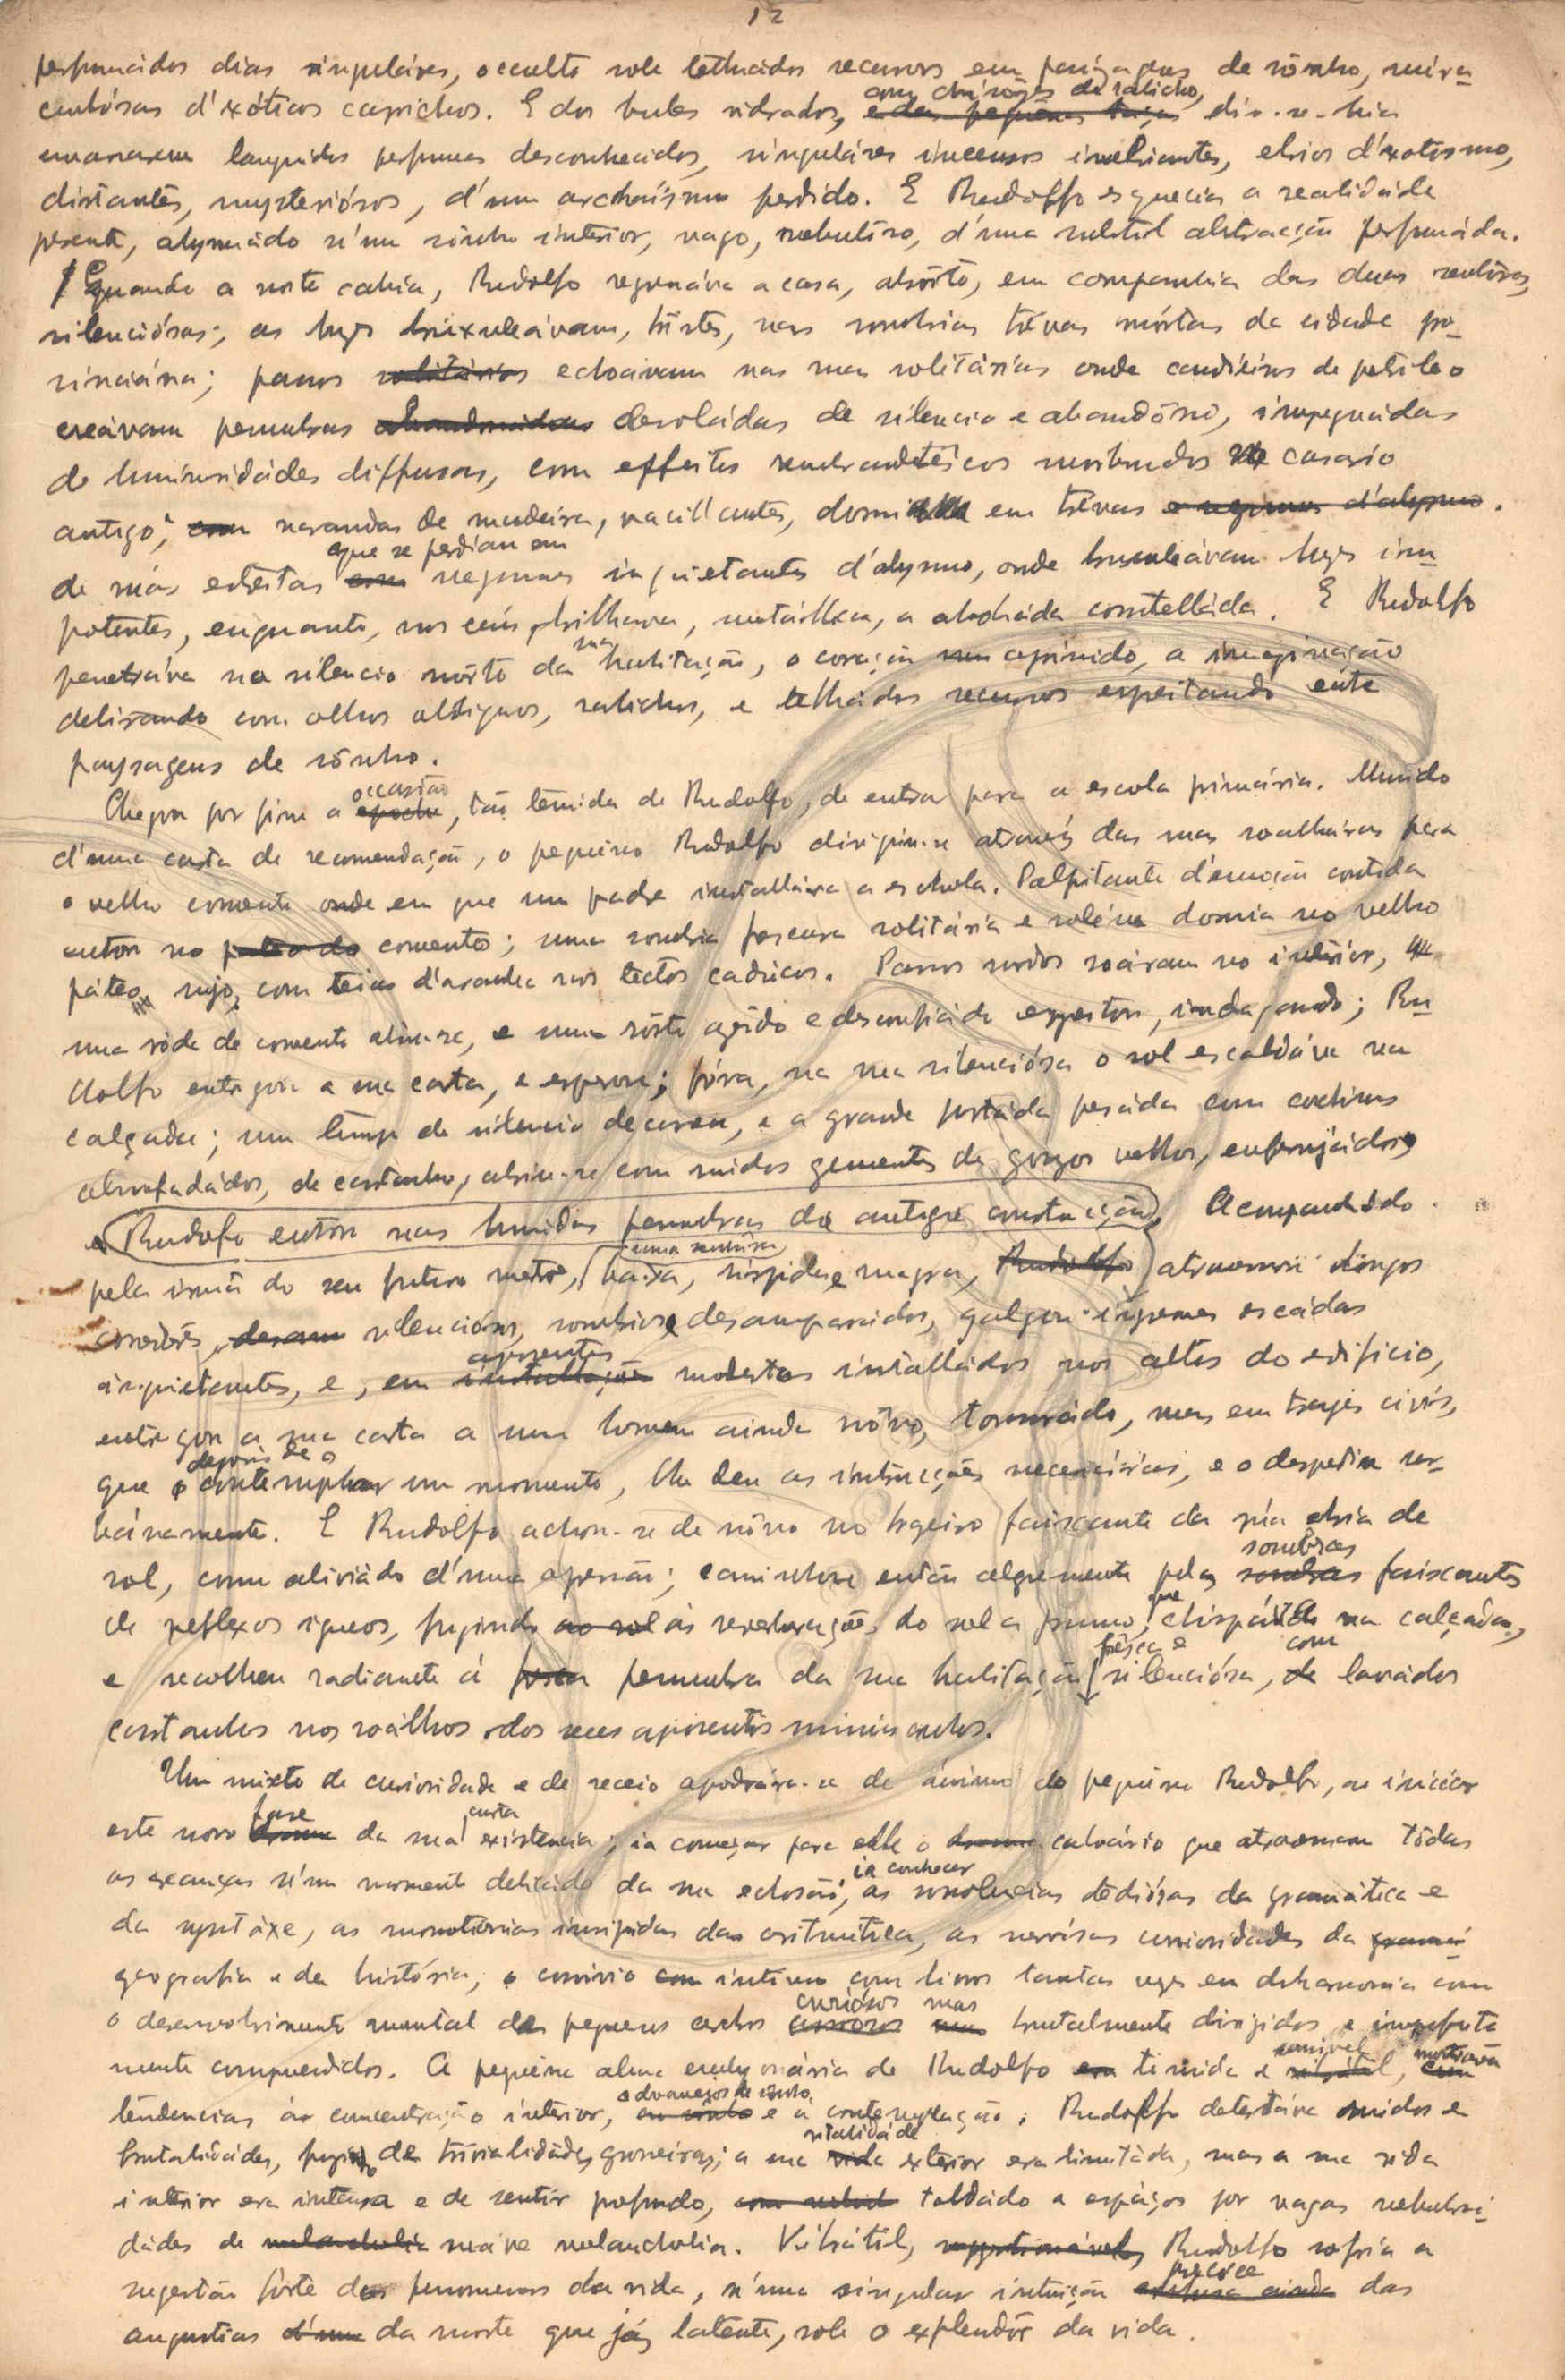 12
perfumados dias singuláres, occulto sob telhados recurvos em paisagens de sônho, mira-
culósas d'exóticos caprichos. E dos bules vidrados, com chinózes de rabicho, dir-se-hia
emanarem languidos perfumes desconhecidos, singuláres incensos inebriantes, ebrios d'exotismo,
distantes, mysteriósos, d'um archaísmo perdido. E Rudolfo esquecia a realidade
presente, abysmádo n'um sônho interior, vago, nebulôso, d'uma subtil abstracção perfumáda.
Quando a noite cahia, Rudolfo regressáva a casa, absôrto, em companhia das duas senhôras,
silenciósas; as luzes bruxuleávam, tristes, nas sombrias trévas mórtas da cidade pro-
vinciána; passos solitários echoavam nas ruas solitárias onde candieiros de petróleo
creávam penumbras abandonadas desoládas de silencio e abandôno, impregnadas
de luminosidádes diffusas, com effeitos rembrandtêscos moribundos casario
antigo, com varandas de madeira, vacillantes, em trévas e regiões d'abysmo.
de rúas estreitas que se perdiam em regiões inquietantes d'abysmo, onde bruxuleávam luzes im-
potentes, enquanto, nos céus, brilhava, metállica, a abobáda constelláda. E Rudolfo
penetráva no silencio môrto da sua habitação, o coração opprimido, a imaginação
delirando com olhos obliquos, rabichos, e telhados recurvos espreitando entre
paysagens de sônho.
Chegou por fim a occasião epocha, tão temida de Rudolfo, de entrar para a escola primária. Munido
d'uma carta de recomendação, o pequeno Rudolfo dirigiu-se através das ruas soalheiras para
o velho convento onde em que um padre installára a eschola. Palpitante d'emoção contida
entrou no pateo do convento; uma sombria frescura solitária e soléne dormia no velho
páteo sujo, com teias d'aranha nos tectos caducos. Passos surdos soáram no interior,
uma róda de convento abriu-se, e um rôsto agudo e desconfiado espreitou, indagando; Ru-
dolfo entregou a sua carta, e esperou; fóra, na rua silenciósa o sol escaldáva na
calçada; um tempo de silencio decorreu, e a grande portáda pesáda com coxins
almofadádos, de castanho, abriu-se com ruidos gementes de gonzos velhos, enferrujádos,
Rudolfo entrou nas humidas penumbras da antiga construcção, Acompanhádo
pela irmã do seu futuro mestre, uma senhôra baixa, rispida e magra, Rudolfo atravessou longos
corredôres, silenciósos, sombrios e desamparados, galgou ingremes escádas
inquietantes, e, em aposentos installações modestos installádos nos altos do edificio,
entregou a sua carta a um homem ainda nôvo, tonsurádo, mas em trajes civís,
que depois de o contemplar um momento, lhe deu as instrucções necessárias, e o despediu ur-
bánamente. E Rudolfo achou-se de nôvo no brazeiro faiscante da rúa ebria de
sol, como aliviádo d'uma opressão; caminhou então alegremente pelas sombras faiscantes
de reflexos igneos, fugindo ao sol ás reverberações do sol a prumo, que chispáva na calçada,
e recolheu radiante á penumbra da sua habitação fresca e silenciósa, com de lavados
castanhos nos soálhos dos seus aposentos minúsculos.
Um mixto de curiosidade e de receio apodrára-se do ánimo do pequeno Rudolfo, ao iniciar
este nova fase drama da sua curta existencia; ia começar para elle o drama calvário que atravessam tôdas
as creanças n'um momento delicádo da sua eclosão; ia conhecer as somnolencias tediósas da gramática e
da syntáxe, as monotonias insipidas da aritmética, as nervósas curiosidades da gramá-
geografia e da história, o convivio com intimo com livros tantas vezes em desharmonia com
o desenvolvimento mental dos pequenos cerebros curiósos mas brutalmente dirigidos e imperfeita-
mente comprendidos. A pequena alma embryonária de Rudolfo era timida e sensivel vibrátil, mostrava com
tendencias ás concentração interior, a devaneios de sonho ao sonho e á contemplação. Rudolfo detestáva ruidos e
brutalidádes, fugindo de trivialidádes grosseiras; a sua vitalidade vida exterior era limitáda, mas a sua vida
interior era intensa e de sentir profundo, toldádo a espáços por vagas nebulosi-
dádes de melancholia suáve melancholia. Vibrátil, suggestionável, Rudolfo sofria a
sugestão fórte dos fenomenos da vida, n'uma singular intuição precoce ainda das
angustias d'uma da morte que jáz latente, sob o esplendôr da vida.